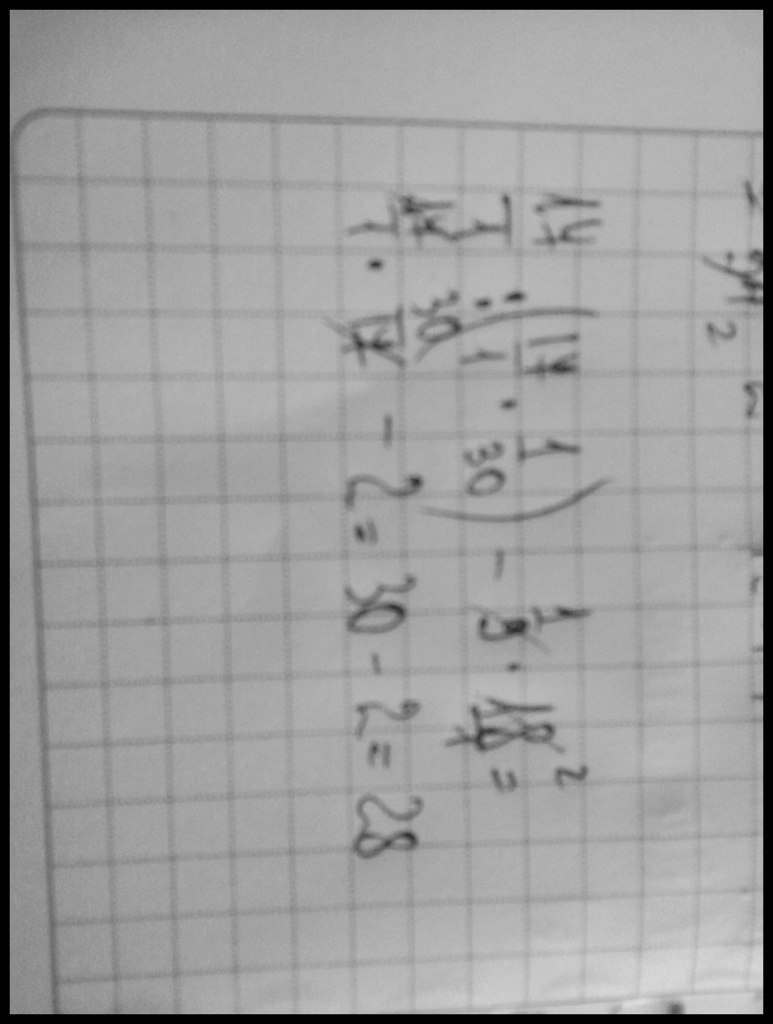 14/1 : (14/1 · 1/30) - 1/9 · 18/1 2 =
14/1 · 30/14 - 2 = 30 - 2 = 28